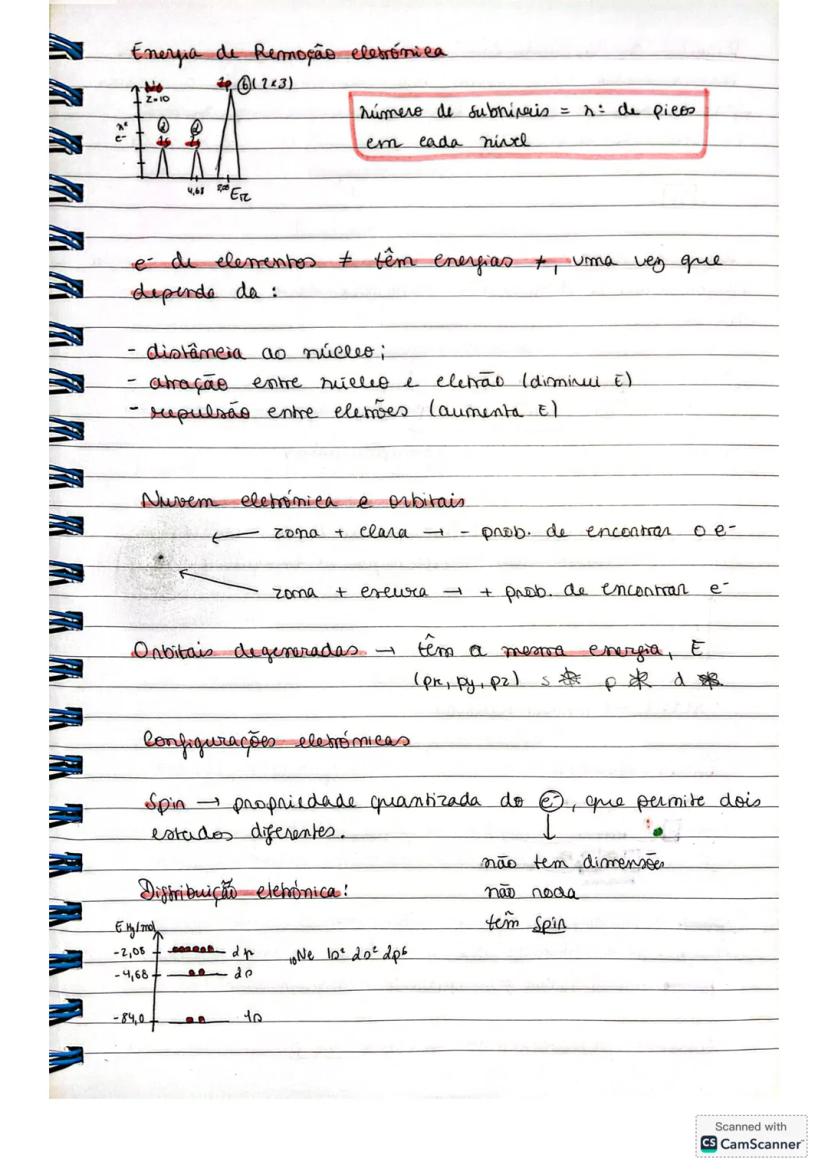 Energia de Remoção eletrónica
Ne
Z=10
2p ⑥(2x3)
nº
e-
② ②
1s 2s
4,68 2,08 ER
número de subníveis = nº de picos
em cada nível
e- de elementos ≠ têm energias ≠, uma vez que
depende da:
- distância ao núcleo;
- atração entre núcleo e eletrão (diminui E)
- repulsão entre eletrões (aumenta E)
Nuvem eletrónica e orbitais
← zona + clara → - prob. de encontrar o e-
zona + escura → + prob. de encontrar e-
Orbitais degeneradas → têm a mesma energia, E
(px, py, pz) s p d
Configurações eletrónicas
Spin → propriedade quantizada do e-, que permite dois
estados diferentes.
não tem dimensões
não roda
tem spin
Distribuição eletrónica:
E
-2,08 2p
-4,68 2s
-84,0 1s
₁₀Ne 1s² 2s² 2p⁶
Scanned with
CS CamScanner